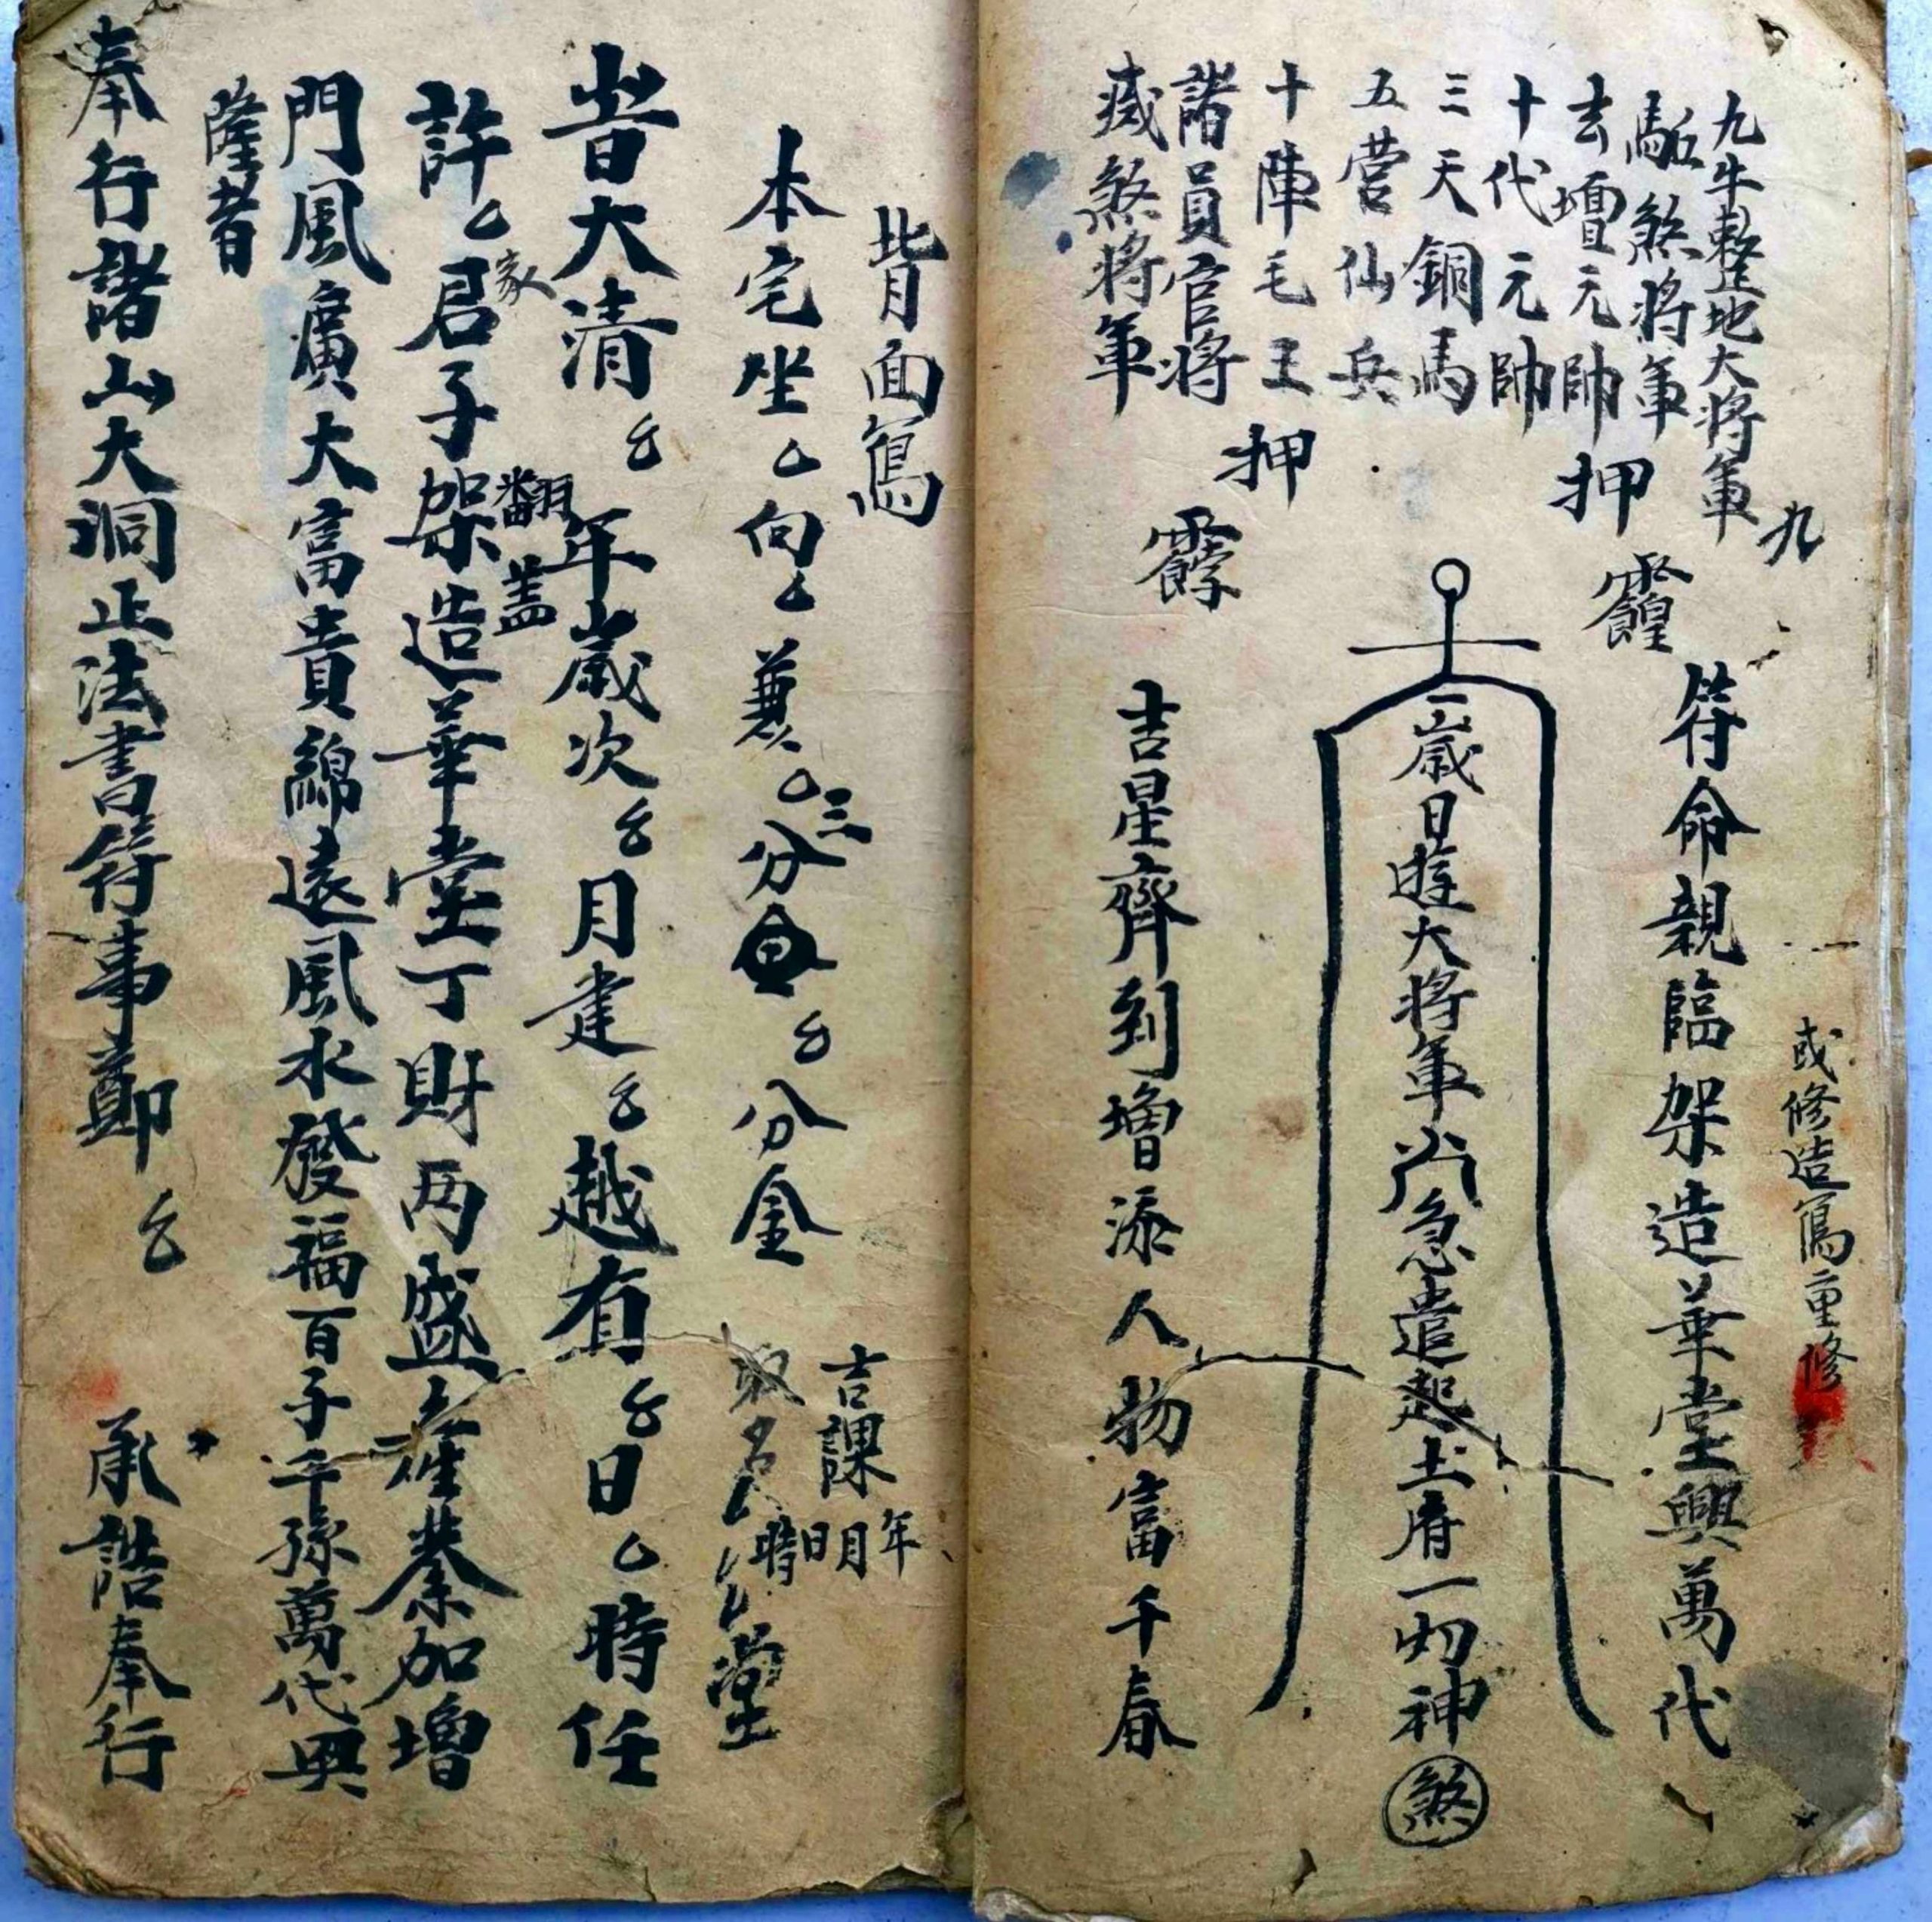 九牛整地大將軍
九
駈煞將軍
去壇元帥
十代元帥
押
三天銅馬
五營仙兵
十陣毛王
押
諸員官將
滅煞將軍
或修造寫重修
符命親臨架造華堂興萬代
二歲日遊大將軍
急遣起土府一切神
煞
吉星齊到增添人物富千春
背面寫
本宅坐厶向厶兼厶三分
厶分金
吉課
年月日時
取名厶厶堂
昔大清厶年歲次厶月建厶越有厶日厶時任
許厶君子架造華堂丁財兩盛產業加增
家
翻蓋
門風廣大富貴綿遠風水發福百子千孫萬代興
隆者
奉行諸山大洞正法書符事鄭厶 承誥奉行